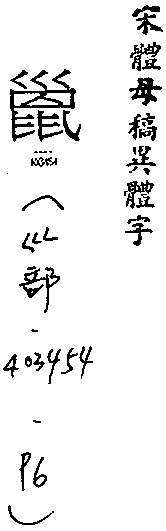 宋體母稿異體字
巤
(巛部-403454-P6)